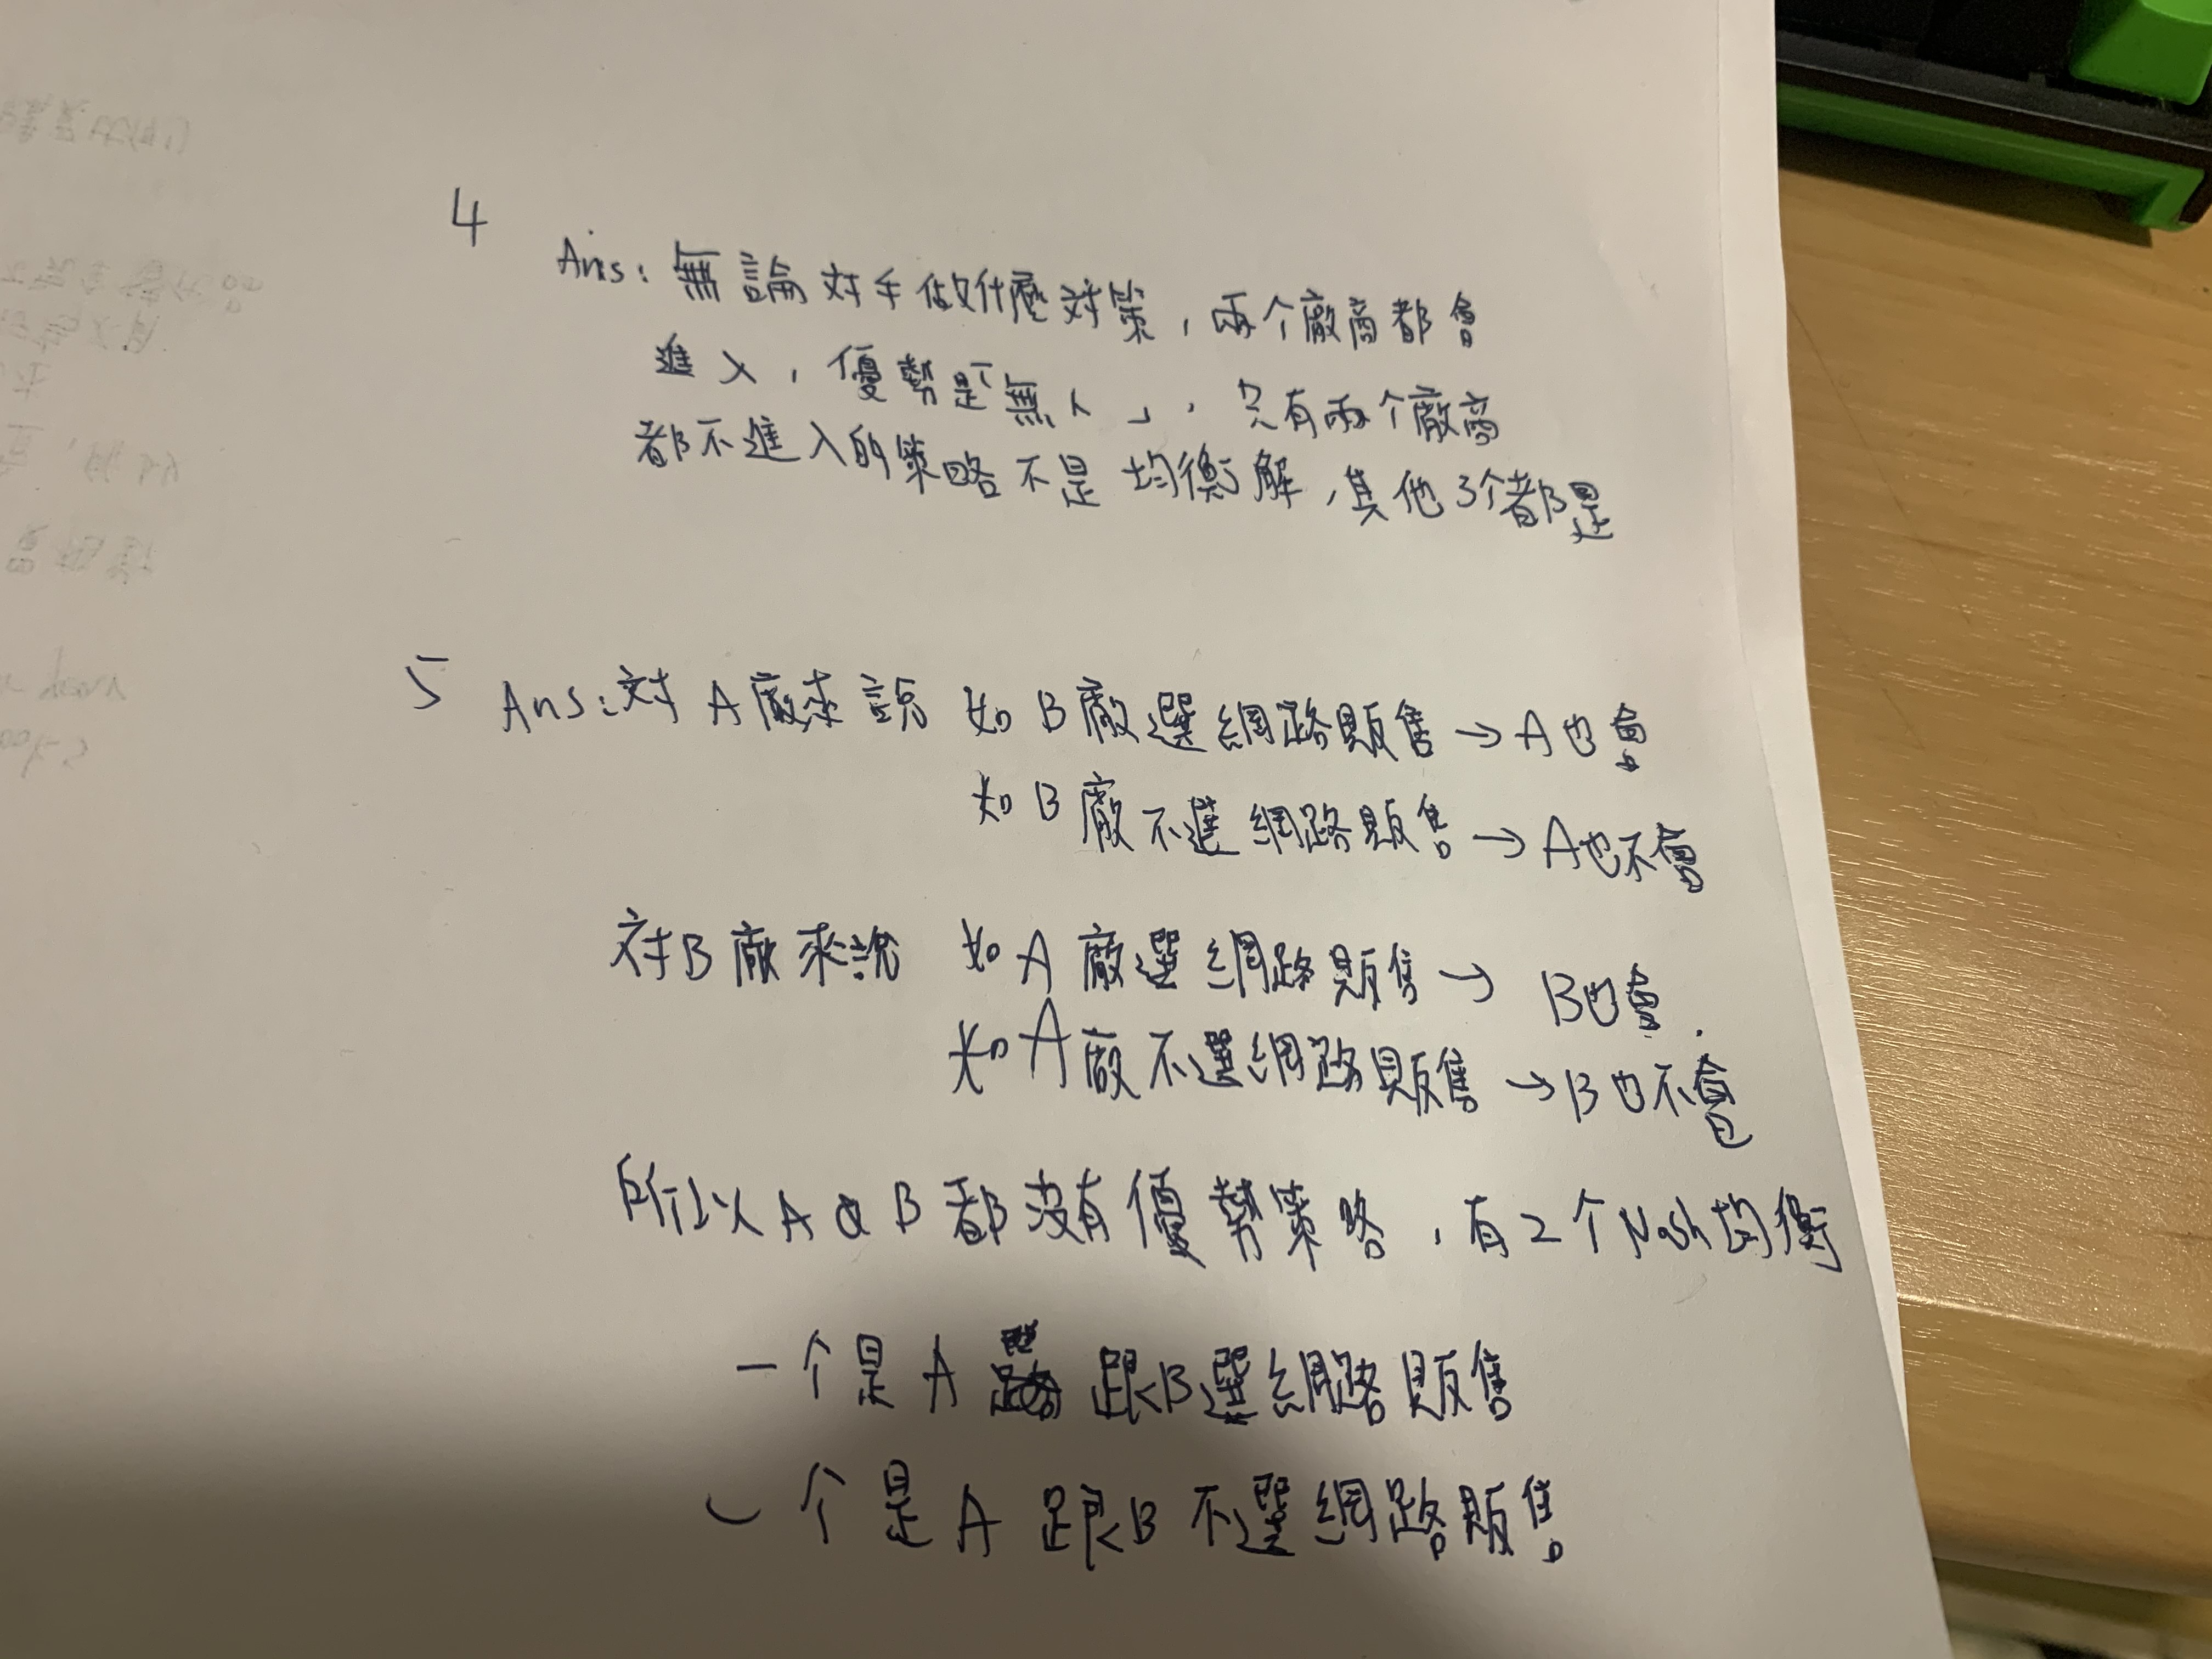 4
Ans: 無論对手做什麼对策，兩个廠商都會
進入，優勢是無人，只有兩个廠商
都不進入的策略不是均衡解，其他3个都是
5 Ans: 对A廠來說 如B廠選網路販售→A也會
如B廠不選網路販售。→A也不會
对B廠來說 如A廠選網路販售→B也會.
如A廠不選網路販售→B也不會
所以A B都沒有優勢策略，有2个Nash均衡
一个是A 跟B選網路販售
一个是A跟B不選網路販售。